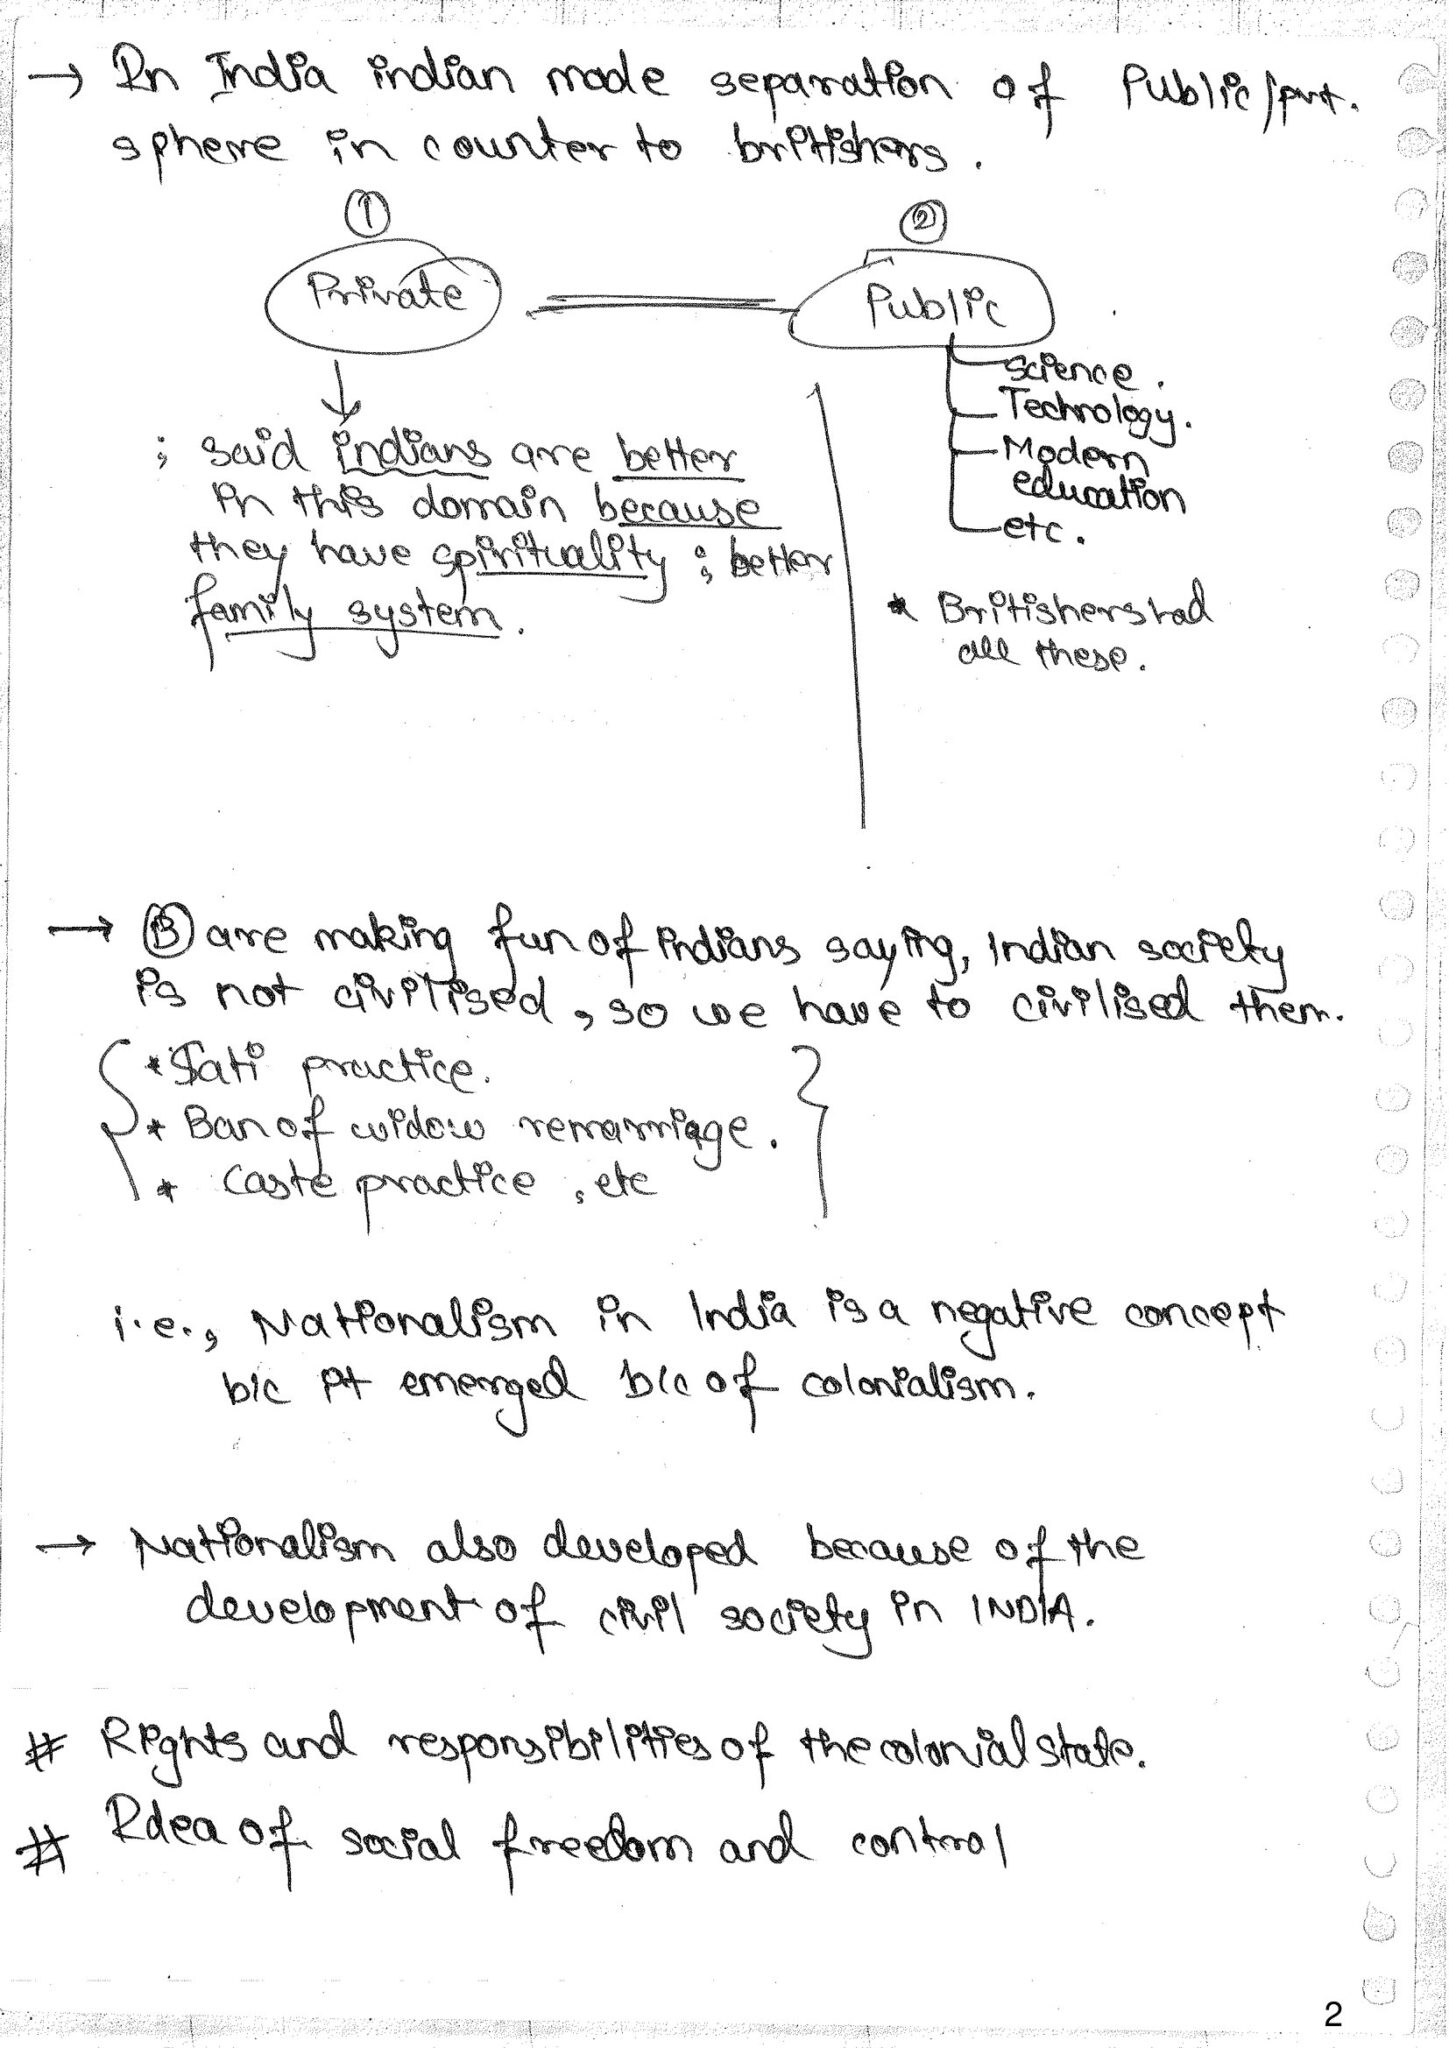 → In India indian made separation of Public/pvt.
sphere in counter to britishers.
① ②
Private Public
Science.
Technology.
Modern
education
etc.
; said indians are better
in this domain because
they have spirituality ; better
family system.
* Britishers had
all these.
→ Ⓑ are making fun of indians saying, indian society
is not civilised, so we have to civilised them.
* Sati practice.
* Ban of widow remarriage.
* Caste practice, etc
i.e., Nationalism in India is a negative concept
b/c it emerged b/c of colonialism.
→ Nationalism also developed because of the
development of civil society in INDIA.
# Rights and responsibilities of the colonial state.
# Idea of social freedom and control
2